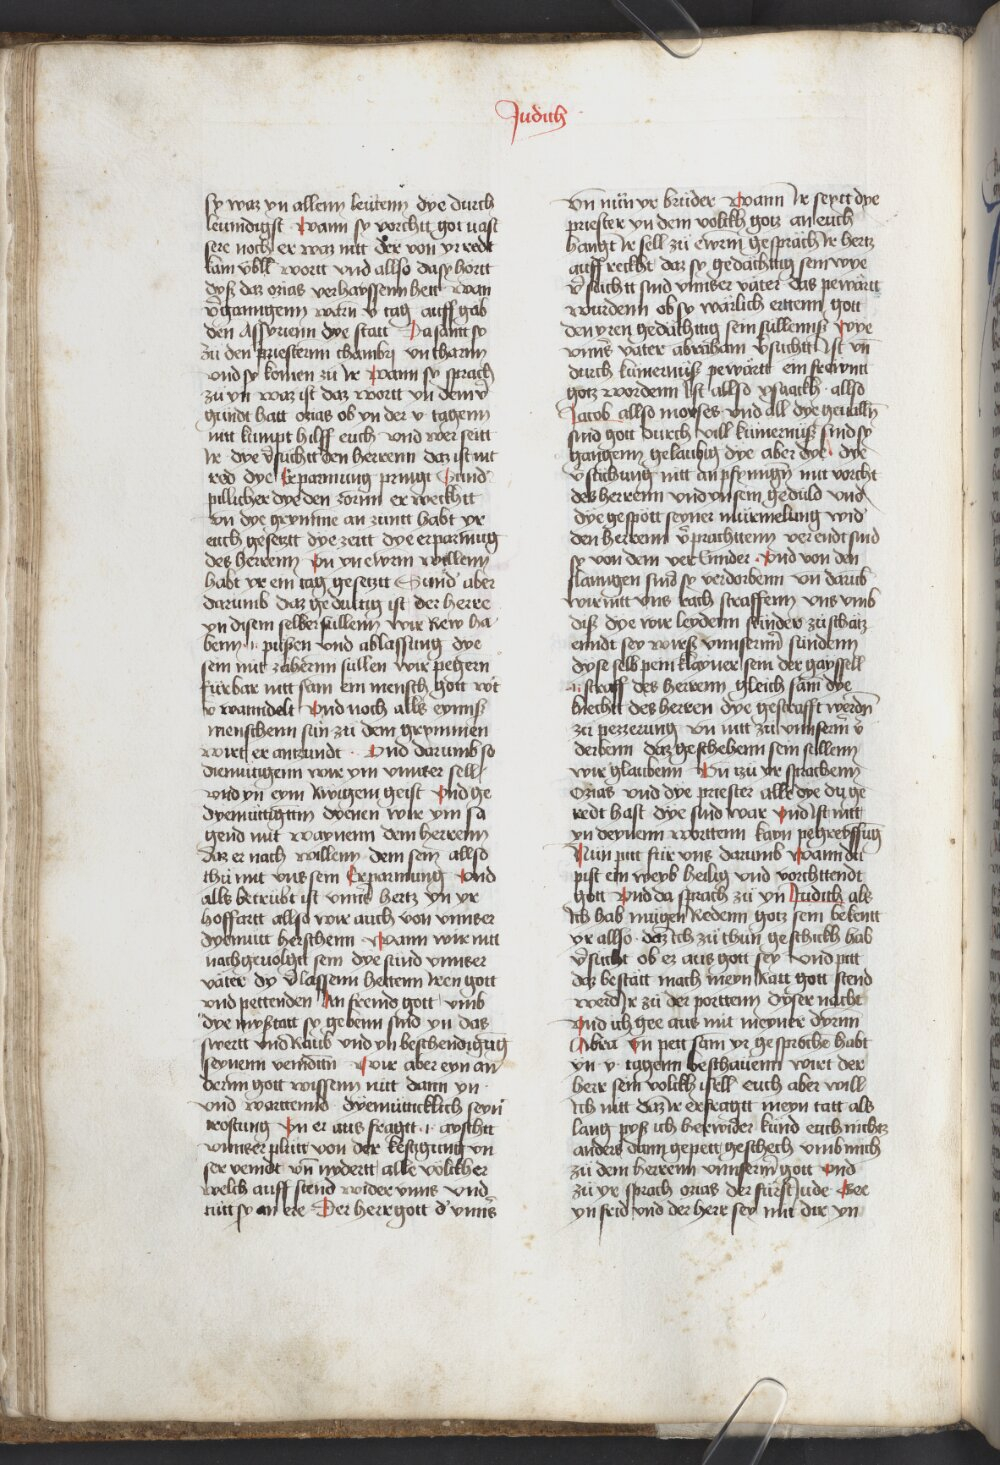 Judith
sy waz yn allenn leütenn dye durch
leumdigist Wann sy vorchtt got vast
sere noch er waz nitt der von yr redt
kain vbell wortt vnd allso da sy hortt
dyß daz ozias verhayssenn hett wan
v̄ganngenn wārn v tag auff gab
den assyrienn dye statt Da sannt sy
zu den priesternn chambri vn charmi
vnd sy komen zü Ir Wann sy sprach
zü yn waz ist daz wortt yn dem v̄
gündt hatt ozias ob yn der v tagenn
nitt kumpt hilff euch vnd wer seitt
Ir dye v̄suchtt den herrenn daz ist nit
red dye Erparmung pringt Sünd
pillicher dye den zornn er weckhtt
vn̄ dye grymme an zuntt habt yr
euch gesetzt dye zeitt dye erparmūg
des herrenn Vn yn ewrm willenn
habt yr ein tag gesetztt Sünd aber
darumb daz gedultig ist der herre
yn disem selber süllenn wir Rew ha
benn ·i· püßen vnd ablassung dye
sein mit zähernn süllen wir pegern
fürbar nitt sam ein mensch gott wirt
v wanndelt Vnd noch alls eyniß
menschenn sün zü dem grymmen
wirt er anzündt · Vnd darumb so
diemütigenn wir ym vnnser sell
vnd yn eym Rwigem geist Vnd ge
dyemüttigttin dyenen wir ym sa
gend mit waynenn dem herrenn
daz er nach willenn dem sein allso
thü mit vns sein Erparmung Vnd
alls betrübt ist vnns hertz yn yr
hoffartt allso wir auch von vnnser
dyemütt herschenn Wann wir nitt
nachgeuolgtt sein dye sünd vnnser
väter dy v̄lassenn hettenn Iren gott
vnd pettenden An fremd gott vmb
dye myßtatt sy gebenn sind yn das
swertt vnd Raub vnd yn beschendigūg
seynenn veinden Wir aber eyn an
dernn gott wissenn nitt dann yn
vnd warttennd dyemütticklich seyn
trostung Vn er aus fragtt ·i· ayschtt
vnnser plütt von der kestigung vn
ser veindt vn̄ nydertt alle völckher
welch auff stend wider vnns vnd
tütt sy an ere Der herr gott d' vnns
vn̄ nün yr brüder Wann Ir seytt dye
priester yn dem volckh gotz an euch
hangt Ir sell zü ewrm gespräch Ir hertz
auff reckht daz sy gedächttig sein wye
v̄suchtt sind vnnser väter das pewärtt
wurdenn ob sy wärlich ertenn gott
den yren gedächttig sein süllenniß Wye
vnns väter abraham v̄suchtt Ist vn̄
durch kümernuß pewärtt ein frewntt
gotz wordenn Ist allso ysaackh · allso
Jacob allso moyses vnd all dye geualln̄
sind gott durch vill kümernüß sind sy
gangenn gelaubig dye aber dye dye
v̄süchung nitt an pfyengn̄ mit vorcht
des herrenn vnd vnsern geduld vnd
dye gespött seyner mürmelung wid'
den herrenn v̄prachttenn verendt sind
sy von dem ver kinder · Vnd von den
slanngen sind sy verdorbenn vn̄ darūb
wir nitt vns rach straffenn vns vmb
diß dye wir leydenn sünder zü schätz
enndt sey wirß vnnsernn̄ sündenn
dyse selb pein klayner sein der gayssell
·i· straff des herrenn gleich sam dye
knecht des herren dye gestrafft werdn̄
zü pezzerung vn̄ nitt zü vnnserm̄ v̄
derbenn daz geschehenn sein süllenn
wir glaubenn Vn zü yr sprachenn
Ozias vnd dye priester alle dye dy ge
redt hast dye sind war Vnd Ist nitt
yn deynenn worttenn kayn pegreyffūg
Nün pitt für vns darumb Wann dü
pist ein weyb heilig vnd vorchttendt
gott Vnd da sprach zü yn Judith als
Ich hab mügen Redenn gotz sein bekentt
yr allso · daz Ich zü thün geschickh hab
v̄sucht ob er aus gott sey vnd pitt
daz bestätt mach meyn Ratt gott stend
werd Ir zü der porttenn dyser nacht
Vnd ich gee aus mit meyner dyrnn
Abra Vn pett sam yr gesproche habt
yn v tagenn beschauenn wirt der
herr sein volckh isrll euch aber will
Ich nitt daz Ir erfragtt meyn tatt als
lang poß ich herwider kund euch nichtz
anders dann gepett geschech vmb mich
zü dem herrenn vnnserm̄ gott Vnd
zü yr sprach ozias der fürst Jude Gee
yn frid vnd der herr sey mit dir yn